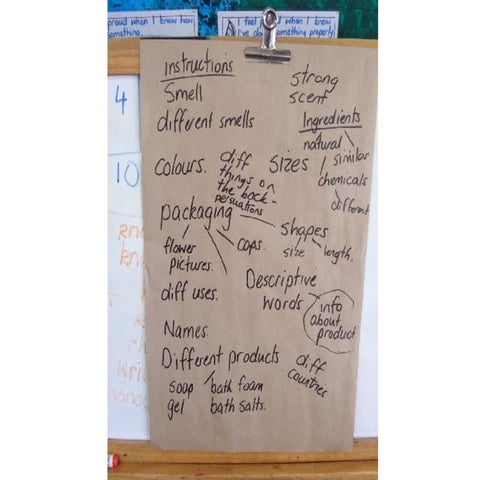 proud when I know how
something.
I feel proud when I know
I've done something properly
4
10
instructions
Smell
different smells
strong
scent
Ingredients
natural
similar
chemicals
different
colours.
diff
things on
the back -
persuations
sizes
packaging
shapes
size
length.
flower
pictures.
caps.
diff uses.
Descriptive
words
info
about
product
Names.
Different products
diff
countries
soap
gel
bath foam
bath salts.